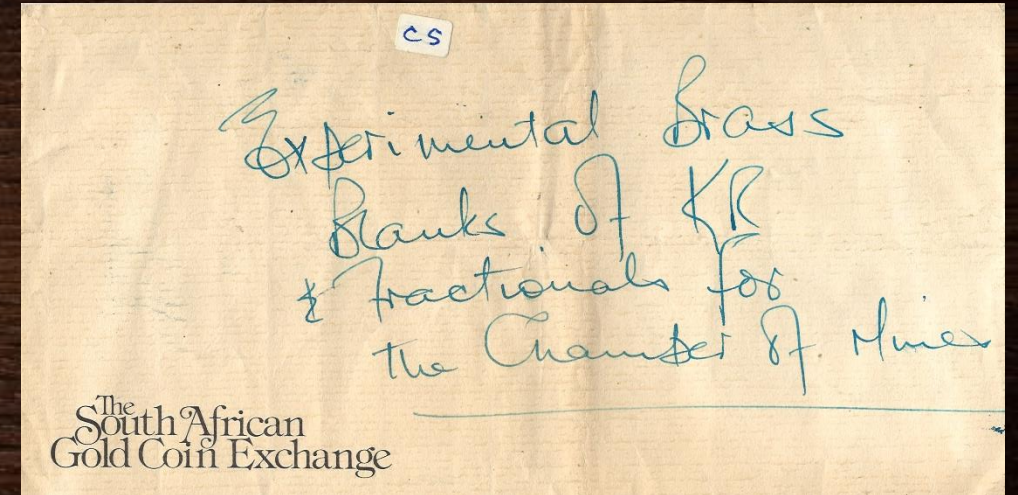 CS
Experimental Brass
Blanks of KR
& Fractionals for
the Chamber of Mines
The
South African
Gold Coin Exchange